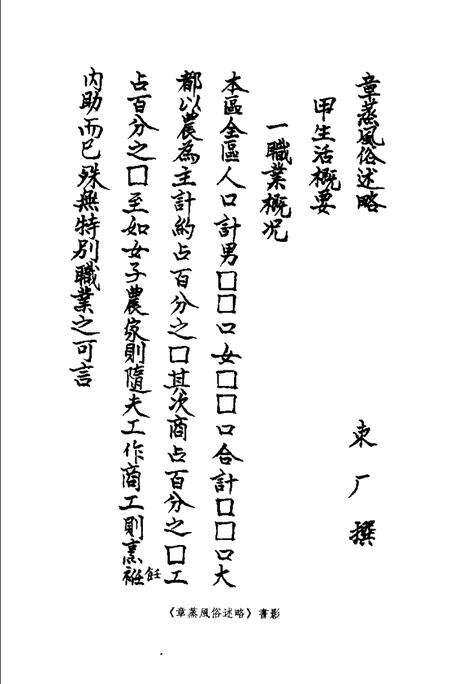 章蒸風俗述略
東厂撰
甲生活概要
一職業概况
本區全區人口計男□□口女□□口合計□□口大
都以農為主計約占百分之□其次商占百分之□工
占百分之□至如女子農家則隨夫工作商工則烹飪
内助而已殊無特別職業之可言
《章蒸風俗述略》書影